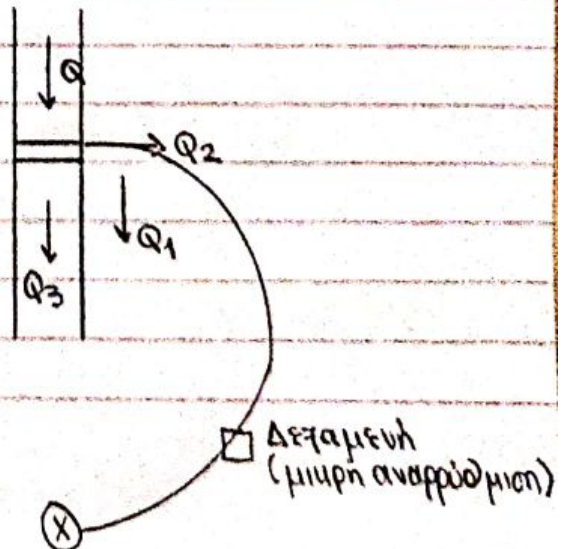 Q
Q2
Q1
Q3
Δεξαμενή
(μικρή αναρρύθμιση)
X